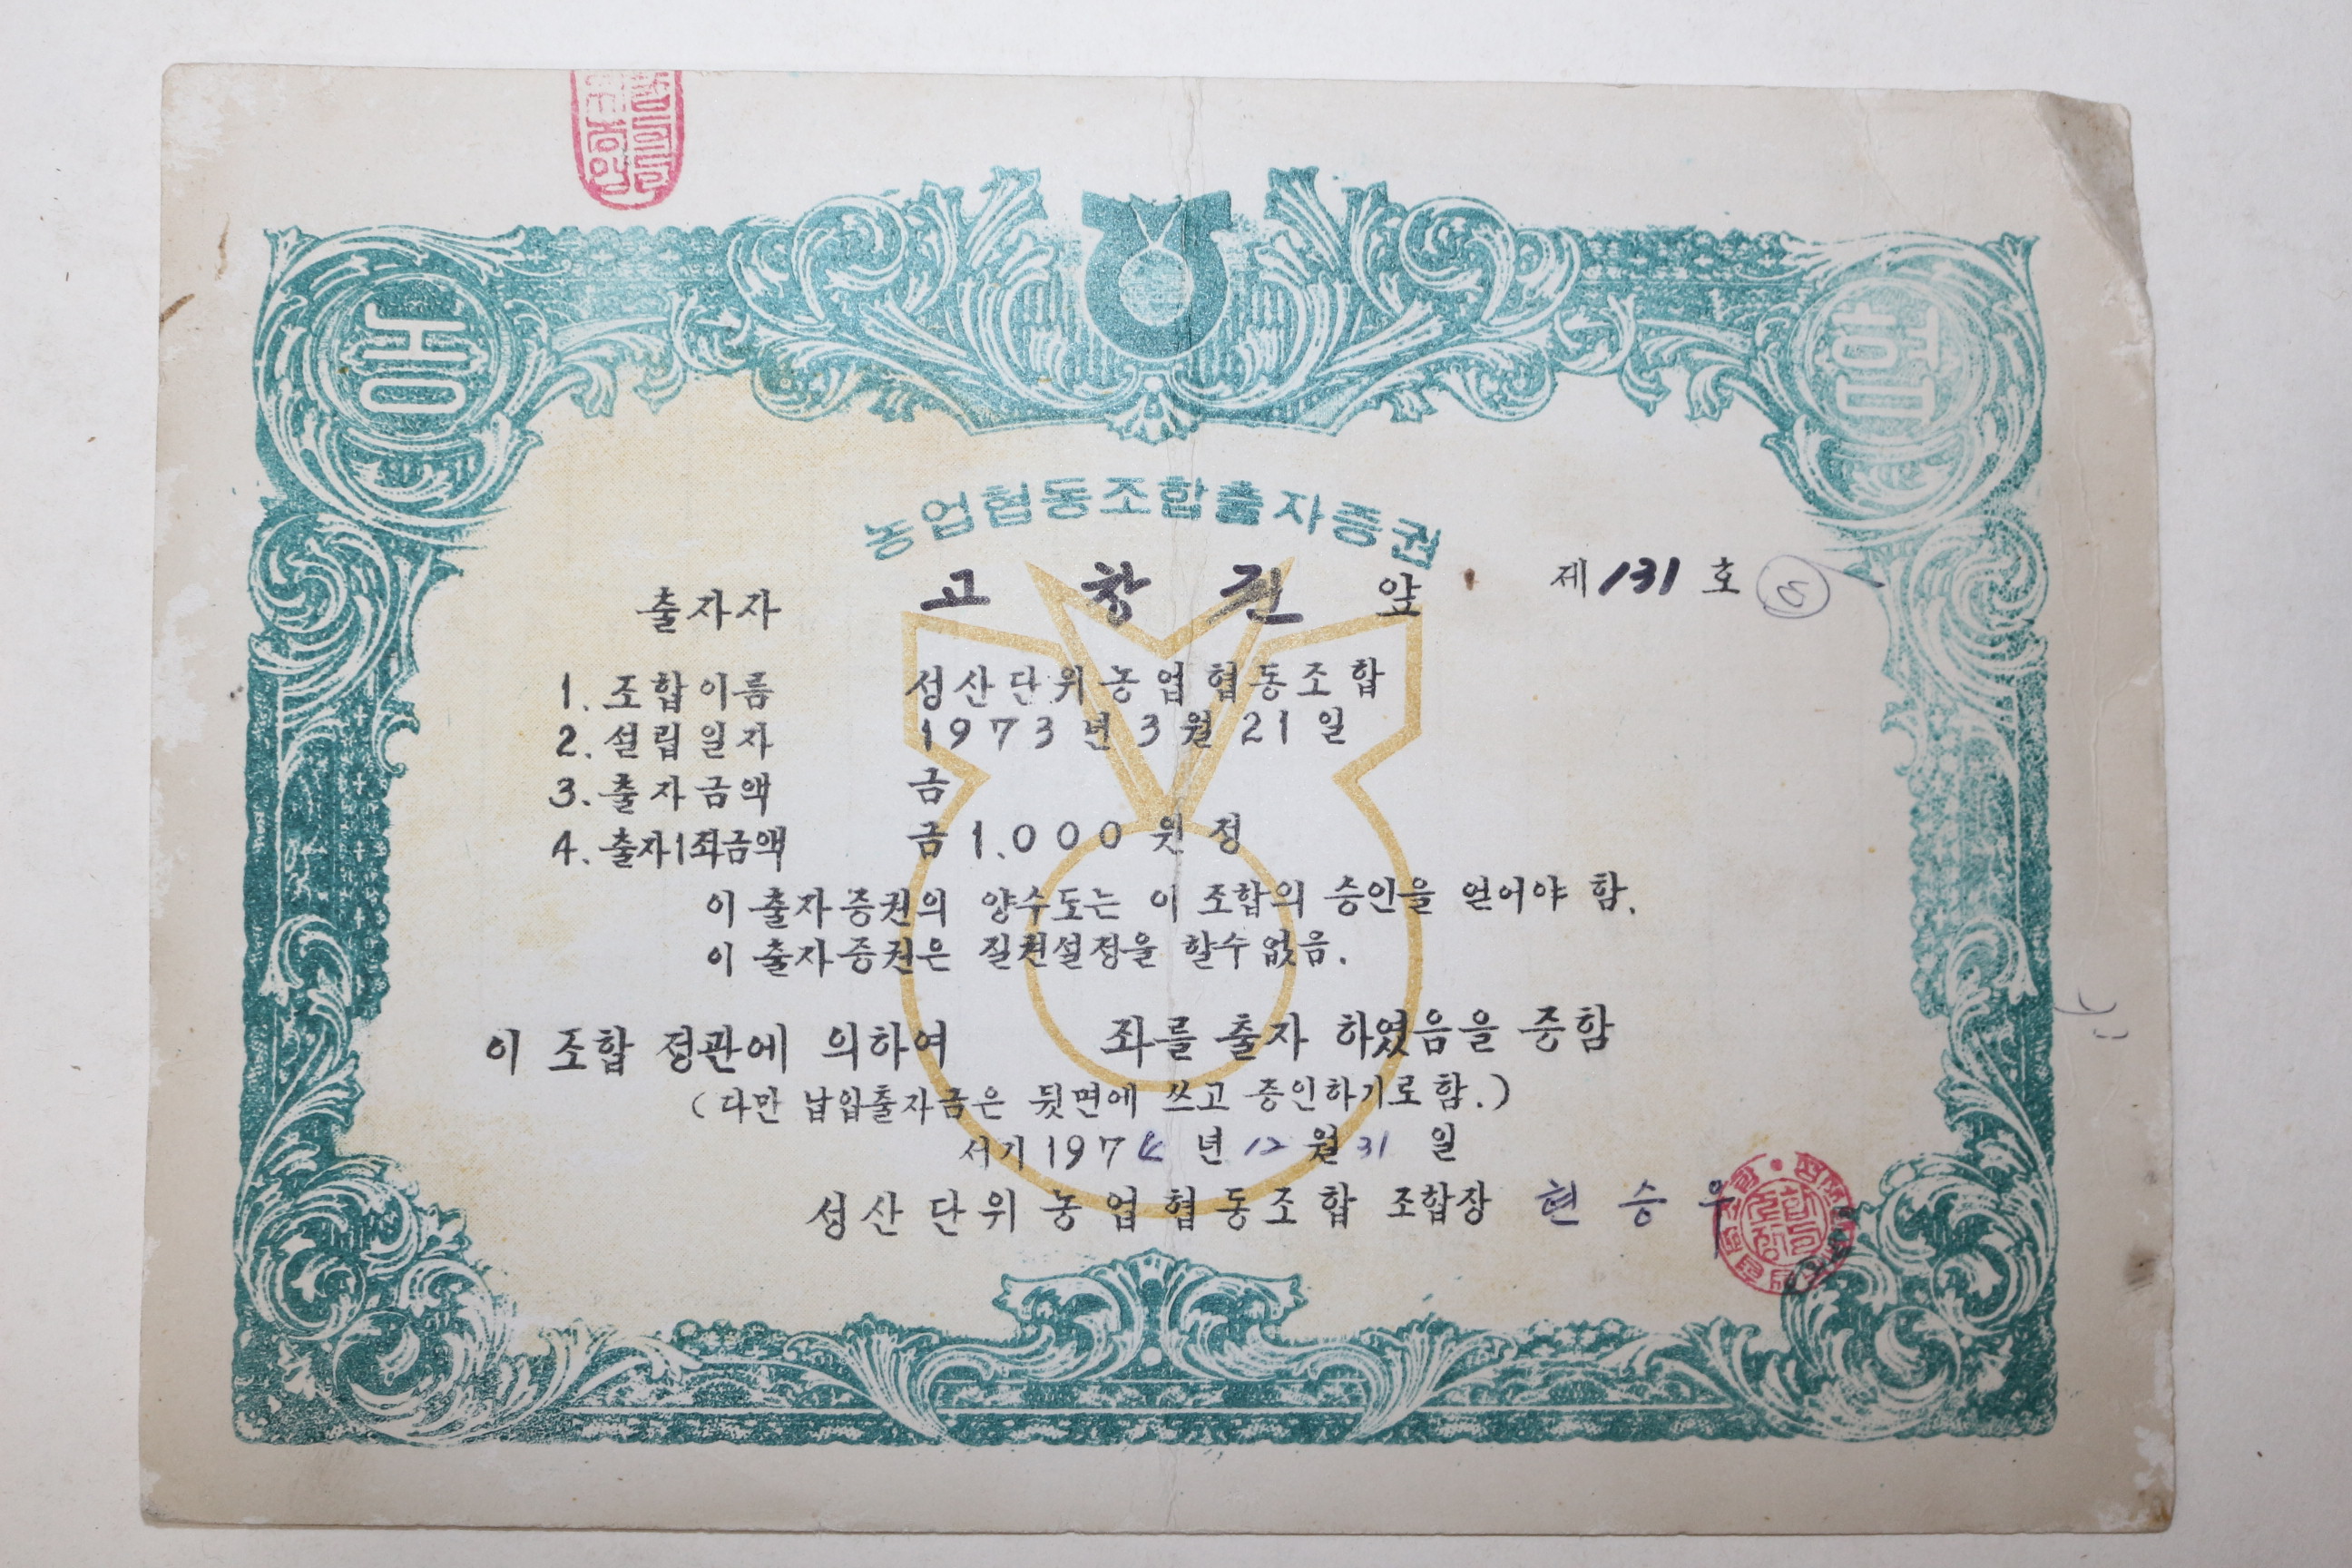 농 협
농업협동조합출자증권
제 131 호
출자자 고 창 권 앞
1. 조합이름 성산단위농업협동조합
2. 설립일자 1973년 3월 21일
3. 출자금액 금
4. 출자1좌금액 금 1,000 원정
이 출자증권의 양수도는 이 조합의 승인을 얻어야 함.
이 출자증권은 질권설정을 할수 없음.
이 조합 정관에 의하여 좌를 출자 하였음을 증함
(다만 납입출자금은 뒷면에 쓰고 증인하기로함.)
서기 1974년 12월 31일
성산단위농업협동조합 조합장 현 승 우